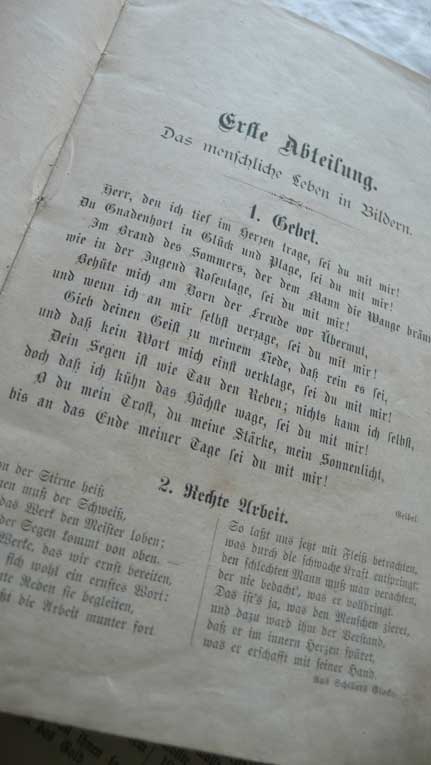 Erste Abteilung.
Das menschliche Leben in Bildern.
1. Gebet.
Herr, den ich tief im Herzen trage, sei du mit mir!
Du Gnadenhort in Glück und Plage, sei du mit mir!
Im Brand des Sommers, der dem Mann die Wange bräun
wie in der Jugend Rosentage, sei du mit mir!
Behüte mich am Born der Freude vor Übermut,
und wenn ich an mir selbst verzage, sei du mit mir!
Gieb deinen Geist zu meinem Liede, daß rein es sei,
und daß kein Wort mich einst verklage, sei du mit mir!
Dein Segen ist wie Tau den Reben; nichts kann ich selbst,
doch daß ich kühn das Höchste wage, sei du mit mir!
O du mein Trost, du meine Stärke, mein Sonnenlicht,
bis an das Ende meiner Tage sei du mit mir!
Geibel.
2. Rechte Arbeit.
on der Stirne heiß
nen muß der Schweiß,
das Werk den Meister loben;
der Segen kommt von oben. —
Werke, das wir ernst bereiten,
sich wohl ein ernstes Wort:
ute Reden sie begleiten,
ßt die Arbeit munter fort
So laßt uns jetzt mit Fleiß betrachten,
was durch die schwache Kraft entspringt;
den schlechten Mann muß man verachten,
der nie bedacht, was er vollbringt.
Das ist's ja, was den Menschen zieret,
und dazu ward ihm der Verstand,
daß er im innern Herzen spüret,
was er erschafft mit seiner Hand.
Aus Schillers Glocke